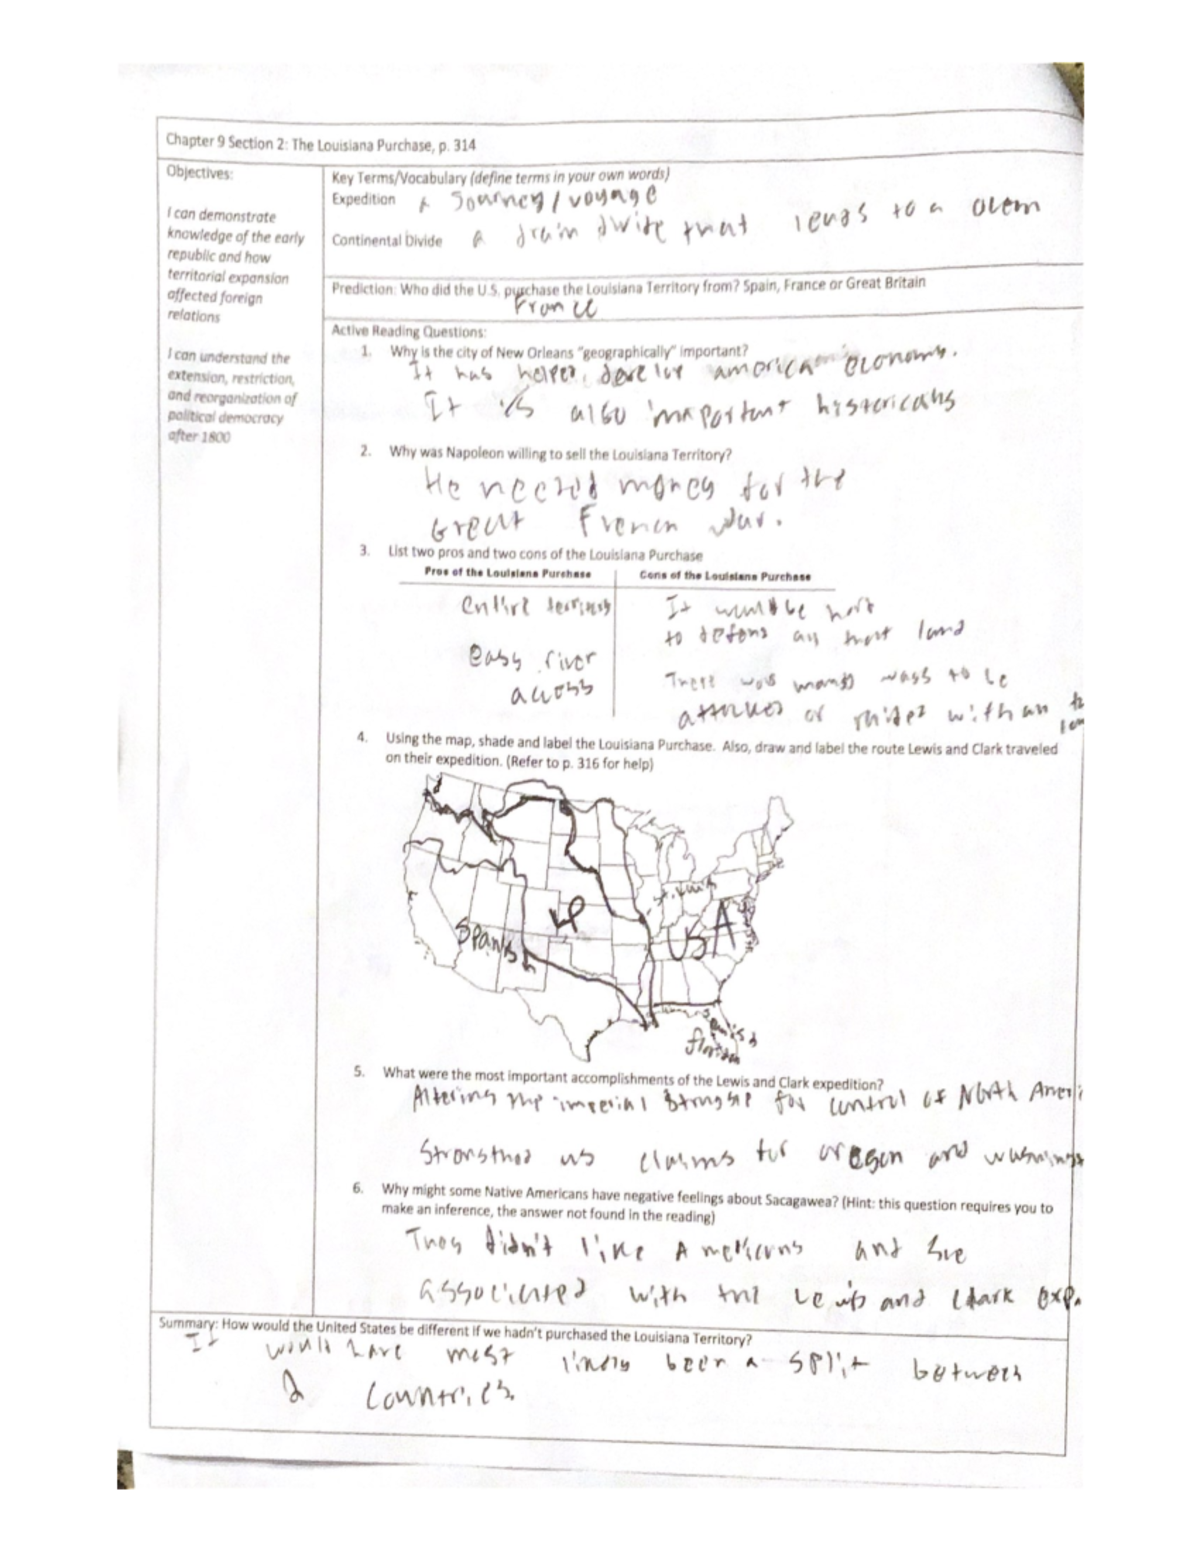 Chapter 9 Section 2: The Louisiana Purchase, p. 314
Objectives:
I can demonstrate
knowledge of the early
republic and how
territorial expansion
affected foreign
relations
I can understand the
extension, restriction,
and reorganization of
political democracy
after 1800
Key Terms/Vocabulary (define terms in your own words)
Expedition A Journey/voyage
Continental Divide a drain dvide that leads to a
Prediction: Who did the U.S. purchase the Louisiana Territory from? Spain, France or Great Britain
France
Active Reading Questions:
1. Why is the city of New Orleans "geographically" important?
It has helped develop american economy.
It is also important historically
2. Why was Napoleon willing to sell the Louisiana Territory?
He needed money for the
Great French war.
3. List two pros and two cons of the Louisiana Purchase
Pros of the Louisiana Purchase Cons of the Louisiana Purchase
entire territory
easy river
access
It would be hard
to defend all that land
There was many ways to be
attacked or with an
4. Using the map, shade and label the Louisiana Purchase. Also, draw and label the route Lewis and Clark traveled
on their expedition. (Refer to p. 316 for help)
LP
USA
Spanish
florida
5. What were the most important accomplishments of the Lewis and Clark expedition?
Altering the imperial struggle for control of North Ameri
us claims for oregon and
6. Why might some Native Americans have negative feelings about Sacagawea? (Hint: this question requires you to
make an inference, the answer not found in the reading)
They didn't like Americans and she
associated with the Lewis and Clark exp.
Summary: How would the United States be different if we hadn't purchased the Louisiana Territory?
It would have most likely been a split between
2 countries.